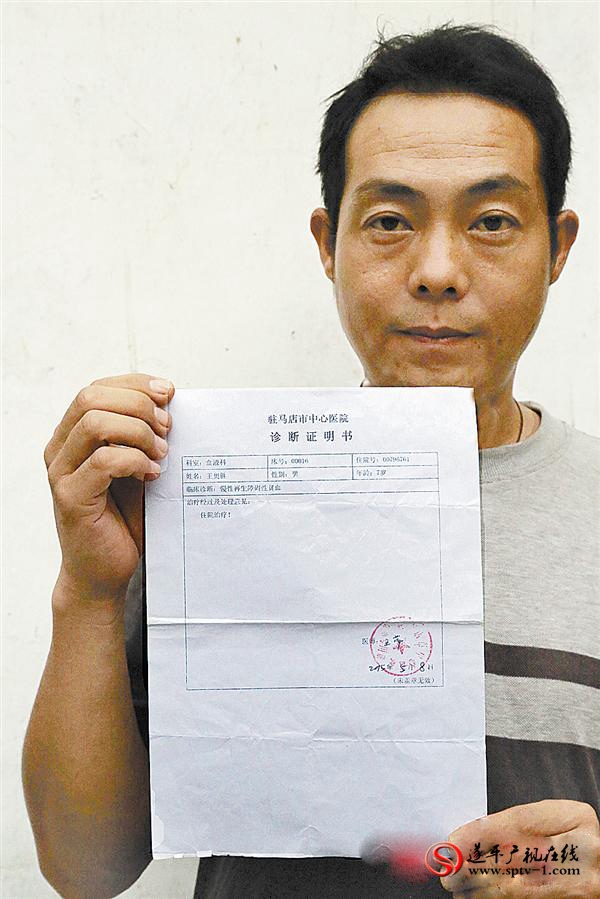 驻马店市中心医院
诊断证明书
科室：血液科 床号：00016 住院号：00796761
姓名：王 性别：男 年龄：7岁
临床诊断：慢性再生障碍性贫血
治疗经过及处理意见：
住院治疗！
医师：
2015年5月8日
（未盖章无效）
遂平广视在线
www.sptv-1.com